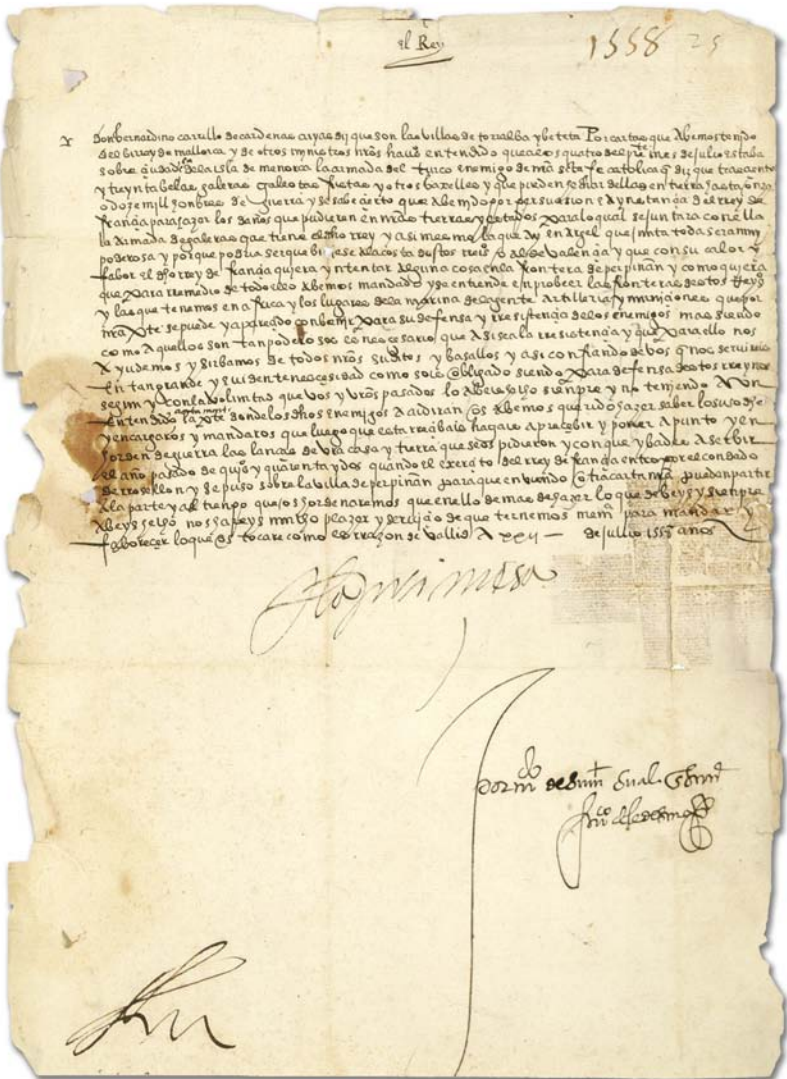 el Rey
1558 25
don bernardino carrillo de cardenas cuyas diz que son las villas de torralba y beteta Por cartas que Abemos tenido
del birrey de mallorca y de otros ministros nros haueis entendido que a los quatro del pnte mes de julio estaba
sobre ciudadela de la isla de menorca la armada del turco enemigo de nra scta fe catolica q diz que trae ciento
y treynta belas galeras galeotas fustas y otros baxelles y que pueden hechar dellas en tierra hasta onze
o doze mill honbres de guerra y se sabe cierto que Abemido por persuesion e Aynstançia del rey de
françia para hazer los daños que pudieren en mis tierras y estados para lo qual se juntara con ella
la Armada de galeras que tiene el dho rrey y asi mesmo la que ay en Argel que junta toda sera muy
poderosa y porque podria ser que biniese a la costa destos rreis o al de Valençia y que con su calor y
fabor el dho rrey de françia quiera yntentar Alguna cosa en la frontera de perpiñan y como quiera
que para rremedio de todo ello Abemos mandado y se entiende en probeer las fronteras destos Reys
y las que tenemos en africa y los lugares de la marina de la gente Artilleria y muniçiones que por
nra pte se puede y a pareçido conbenir para su defensa y rresistençia de los enemigos mas siendo
como Aquellos son tan poderosos es neçesario que Asi sea la rresistençia y que para ello nos
Ayudemos y sirbamos de todos nros subditos y basallos y asi confiando de vos q nos seruireis
en tan grande y euidente neçesidad como sois obligado siendo para defensa destos rreynos
segun y con la voluntad que vos y vros pasados lo Abeis hecho sienpre y no teniendo Aun
entendido la pte donde los dhos enemigos Acudiran os Abemos querido hazer saber lo suso dho
y encargaros y mandaros que luego que esta rreçibais hagais aperçebir y poner A punto y en
horden de guerra las lanças de vra casa y tierra que se os pidieron y con que ybades A serbir
el año pasado de quis y quarenta y dos quando el exerçito del rrey de françia entro por el condado
de rrosellon y se puso sobre la villa de perpiñan para que en viendo otra carta nra puedan partir
A la parte y al tienpo que os hordenaremos que en ello demas de hazer lo que debeys y sienpre
Abeys hecho nos hareys mucho plazer y seruiçio de que ternemos memª para mandar y
faborecer lo que os tocare como es rrazon de Vallid A xxii de jullio 1558 años
La prinçesa
por mdo de su mt su al. en su nre
frco de ledesma